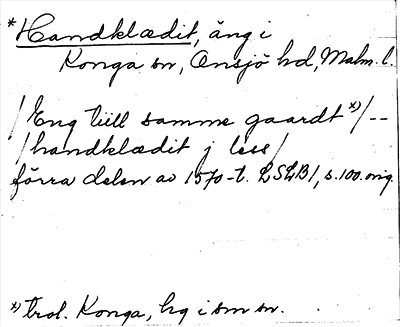 *Handklædit, äng i
Konga sn, Onsjö hd, Malm. l.
/Eng tiill samme gaardt *)/--
/handklædit j less/
förra delen av 1570-t. LSLB1, s.100. orig.
*) trol. Konga, hg i sm sn.